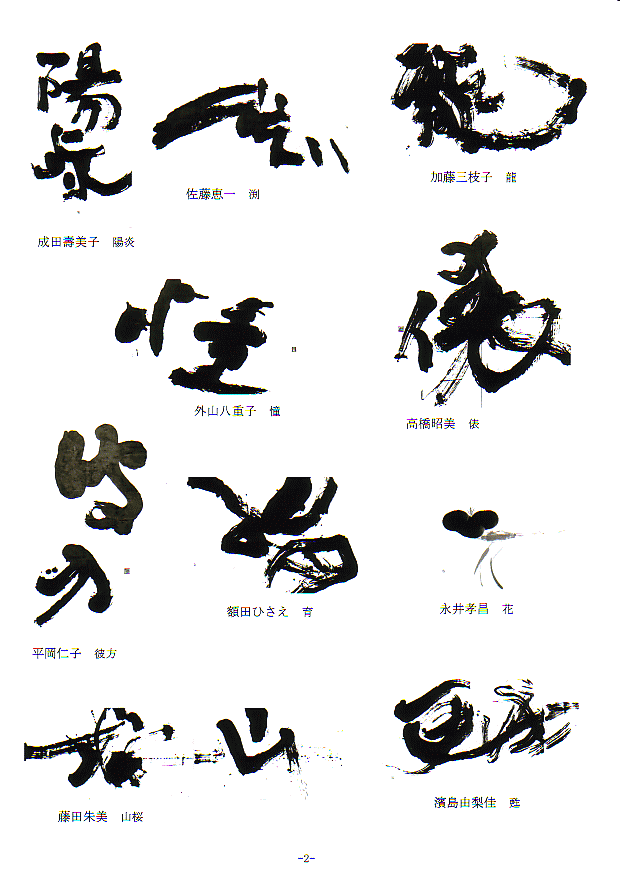 陽炎
成田壽美子 陽炎
佐藤恵一 渕
龍
加藤三枝子 龍
憧
外山八重子 憧
高橋昭美 俵
彼方
平岡仁子 彼方
額田ひさえ 育
花
永井孝昌 花
山桜
藤田朱美 山桜
甦
濱島由梨佳 甦
-2-